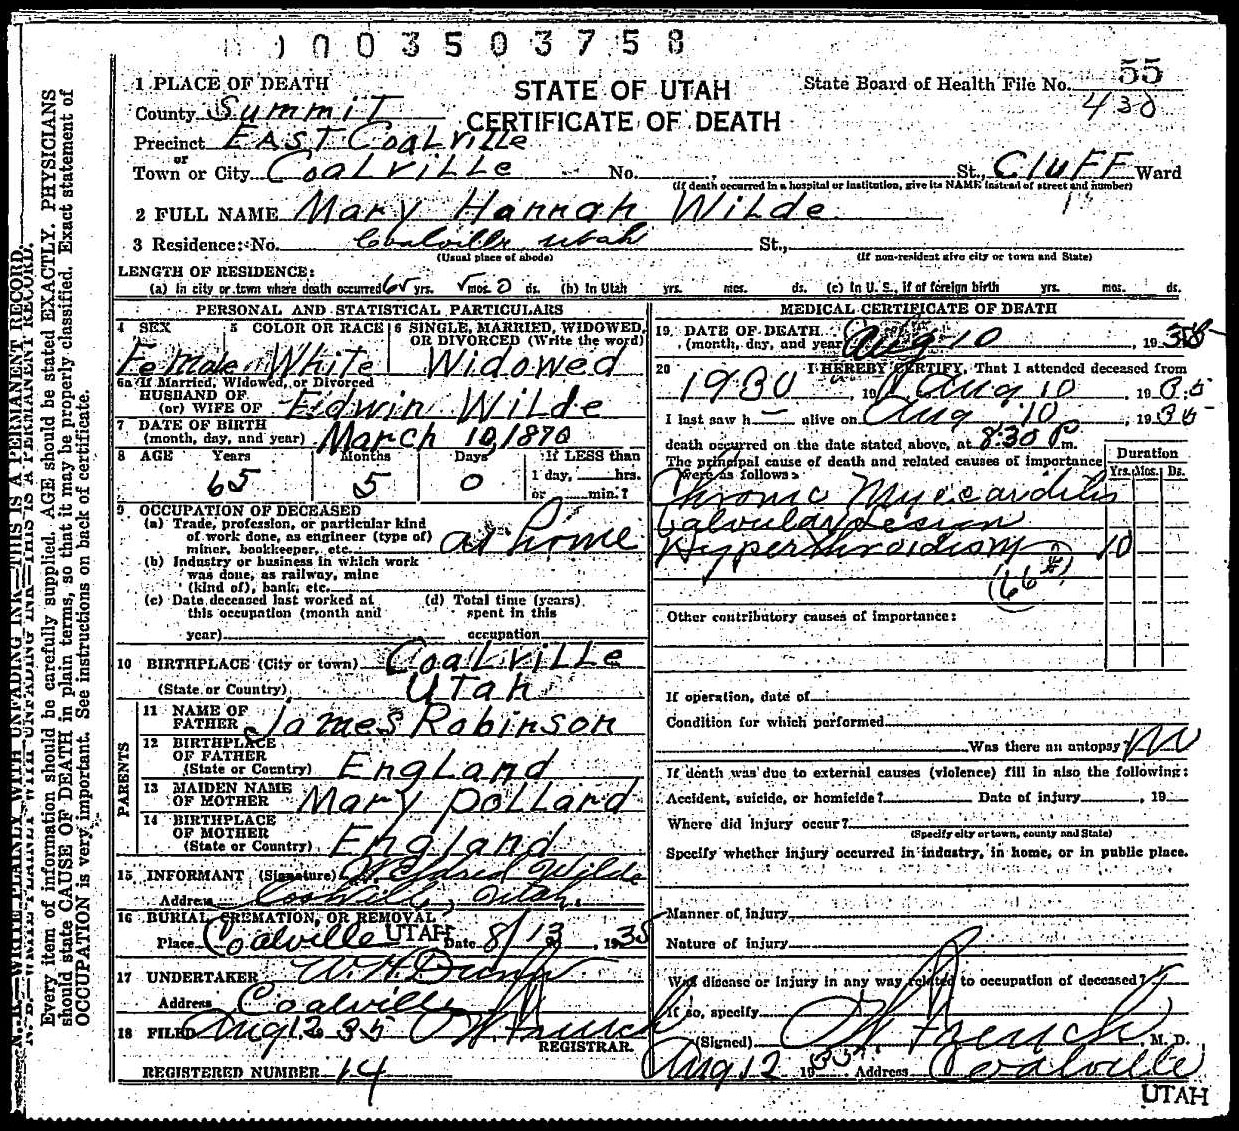 0003503758
55
1 PLACE OF DEATH
STATE OF UTAH
State Board of Health File No.
430
County Summit
CERTIFICATE OF DEATH
Precinct EAST Coalville
or
Town or City Coalville No. St., Cluff Ward
(If death occurred in a hospital or institution, give its NAME instead of street and number)
2 FULL NAME Mary Hannah Wilde
3 Residence: No. Coalville Utah St.,
(Usual place of abode) (If non-resident give city or town and State)
LENGTH OF RESIDENCE:
(a) In city or town where death occurred 65 yrs. 5 mos. 0 ds. (b) In Utah yrs. mos. ds. (c) In U. S., if of foreign birth yrs. mos. ds.
PERSONAL AND STATISTICAL PARTICULARS
4 SEX 5 COLOR OR RACE 6 SINGLE, MARRIED, WIDOWED, OR DIVORCED (Write the word)
Female White Widowed
6a If Married, Widowed, or Divorced
HUSBAND OF
(or) WIFE OF Edwin Wilde
7 DATE OF BIRTH
(month, day, and year) March 10, 1870
8 AGE Years Months Days If LESS than
65 5 0 1 day, hrs.
or min.?
9 OCCUPATION OF DECEASED
(a) Trade, profession, or particular kind
of work done, as engineer (type of)
miner, bookkeeper, etc. at home
(b) Industry or business in which work
was done, as railway, mine
(kind of), bank, etc.
(c) Date deceased last worked at
this occupation (month and
year)
(d) Total time (years)
spent in this
occupation
10 BIRTHPLACE (City or town) Coalville
(State or Country) Utah
PARENTS
11 NAME OF
FATHER James Robinson
12 BIRTHPLACE
OF FATHER
(State or Country) England
13 MAIDEN NAME
OF MOTHER Mary Pollard
14 BIRTHPLACE
OF MOTHER
(State or Country) England
15 INFORMANT (Signature) Wilde
Address Coalville, Utah.
16 BURIAL, CREMATION, OR REMOVAL
Place Coalville UTAH Date 8/13, 1935
17 UNDERTAKER
Address Coalville
18 FILED Aug 12 35
REGISTRAR.
REGISTERED NUMBER 14
MEDICAL CERTIFICATE OF DEATH
19 DATE OF DEATH
(month, day, and year) Aug 10, 1935
20 I HEREBY CERTIFY, That I attended deceased from
1930, 19 Aug 10 1935
I last saw h alive on Aug 10, 1935
death occurred on the date stated above, at 8:30 P m.
The principal cause of death and related causes of importance
were as follows: Duration
Yrs. Mos. Ds.
Chronic Myocarditis
Valvular Lesion
Hyperthyroidism 10
Other contributory causes of importance:
If operation, date of
Condition for which performed
Was there an autopsy no
If death was due to external causes (violence) fill in also the following:
Accident, suicide, or homicide? Date of injury, 19
Where did injury occur?
(Specify city or town, county and State)
Specify whether injury occurred in industry, in home, or in public place.
Manner of injury
Nature of injury
Was disease or injury in any way related to occupation of deceased?
If so, specify
(Signed) French, M. D.
Aug 12 1935. Address Coalville
UTAH
N. B.—WRITE PLAINLY WITH UNFADING INK—THIS IS A PERMANENT RECORD.
Every item of information should be carefully supplied. AGE should be stated EXACTLY. PHYSICIANS
should state CAUSE OF DEATH in plain terms, so that it may be properly classified. Exact statement of
OCCUPATION is very important. See instructions on back of certificate.